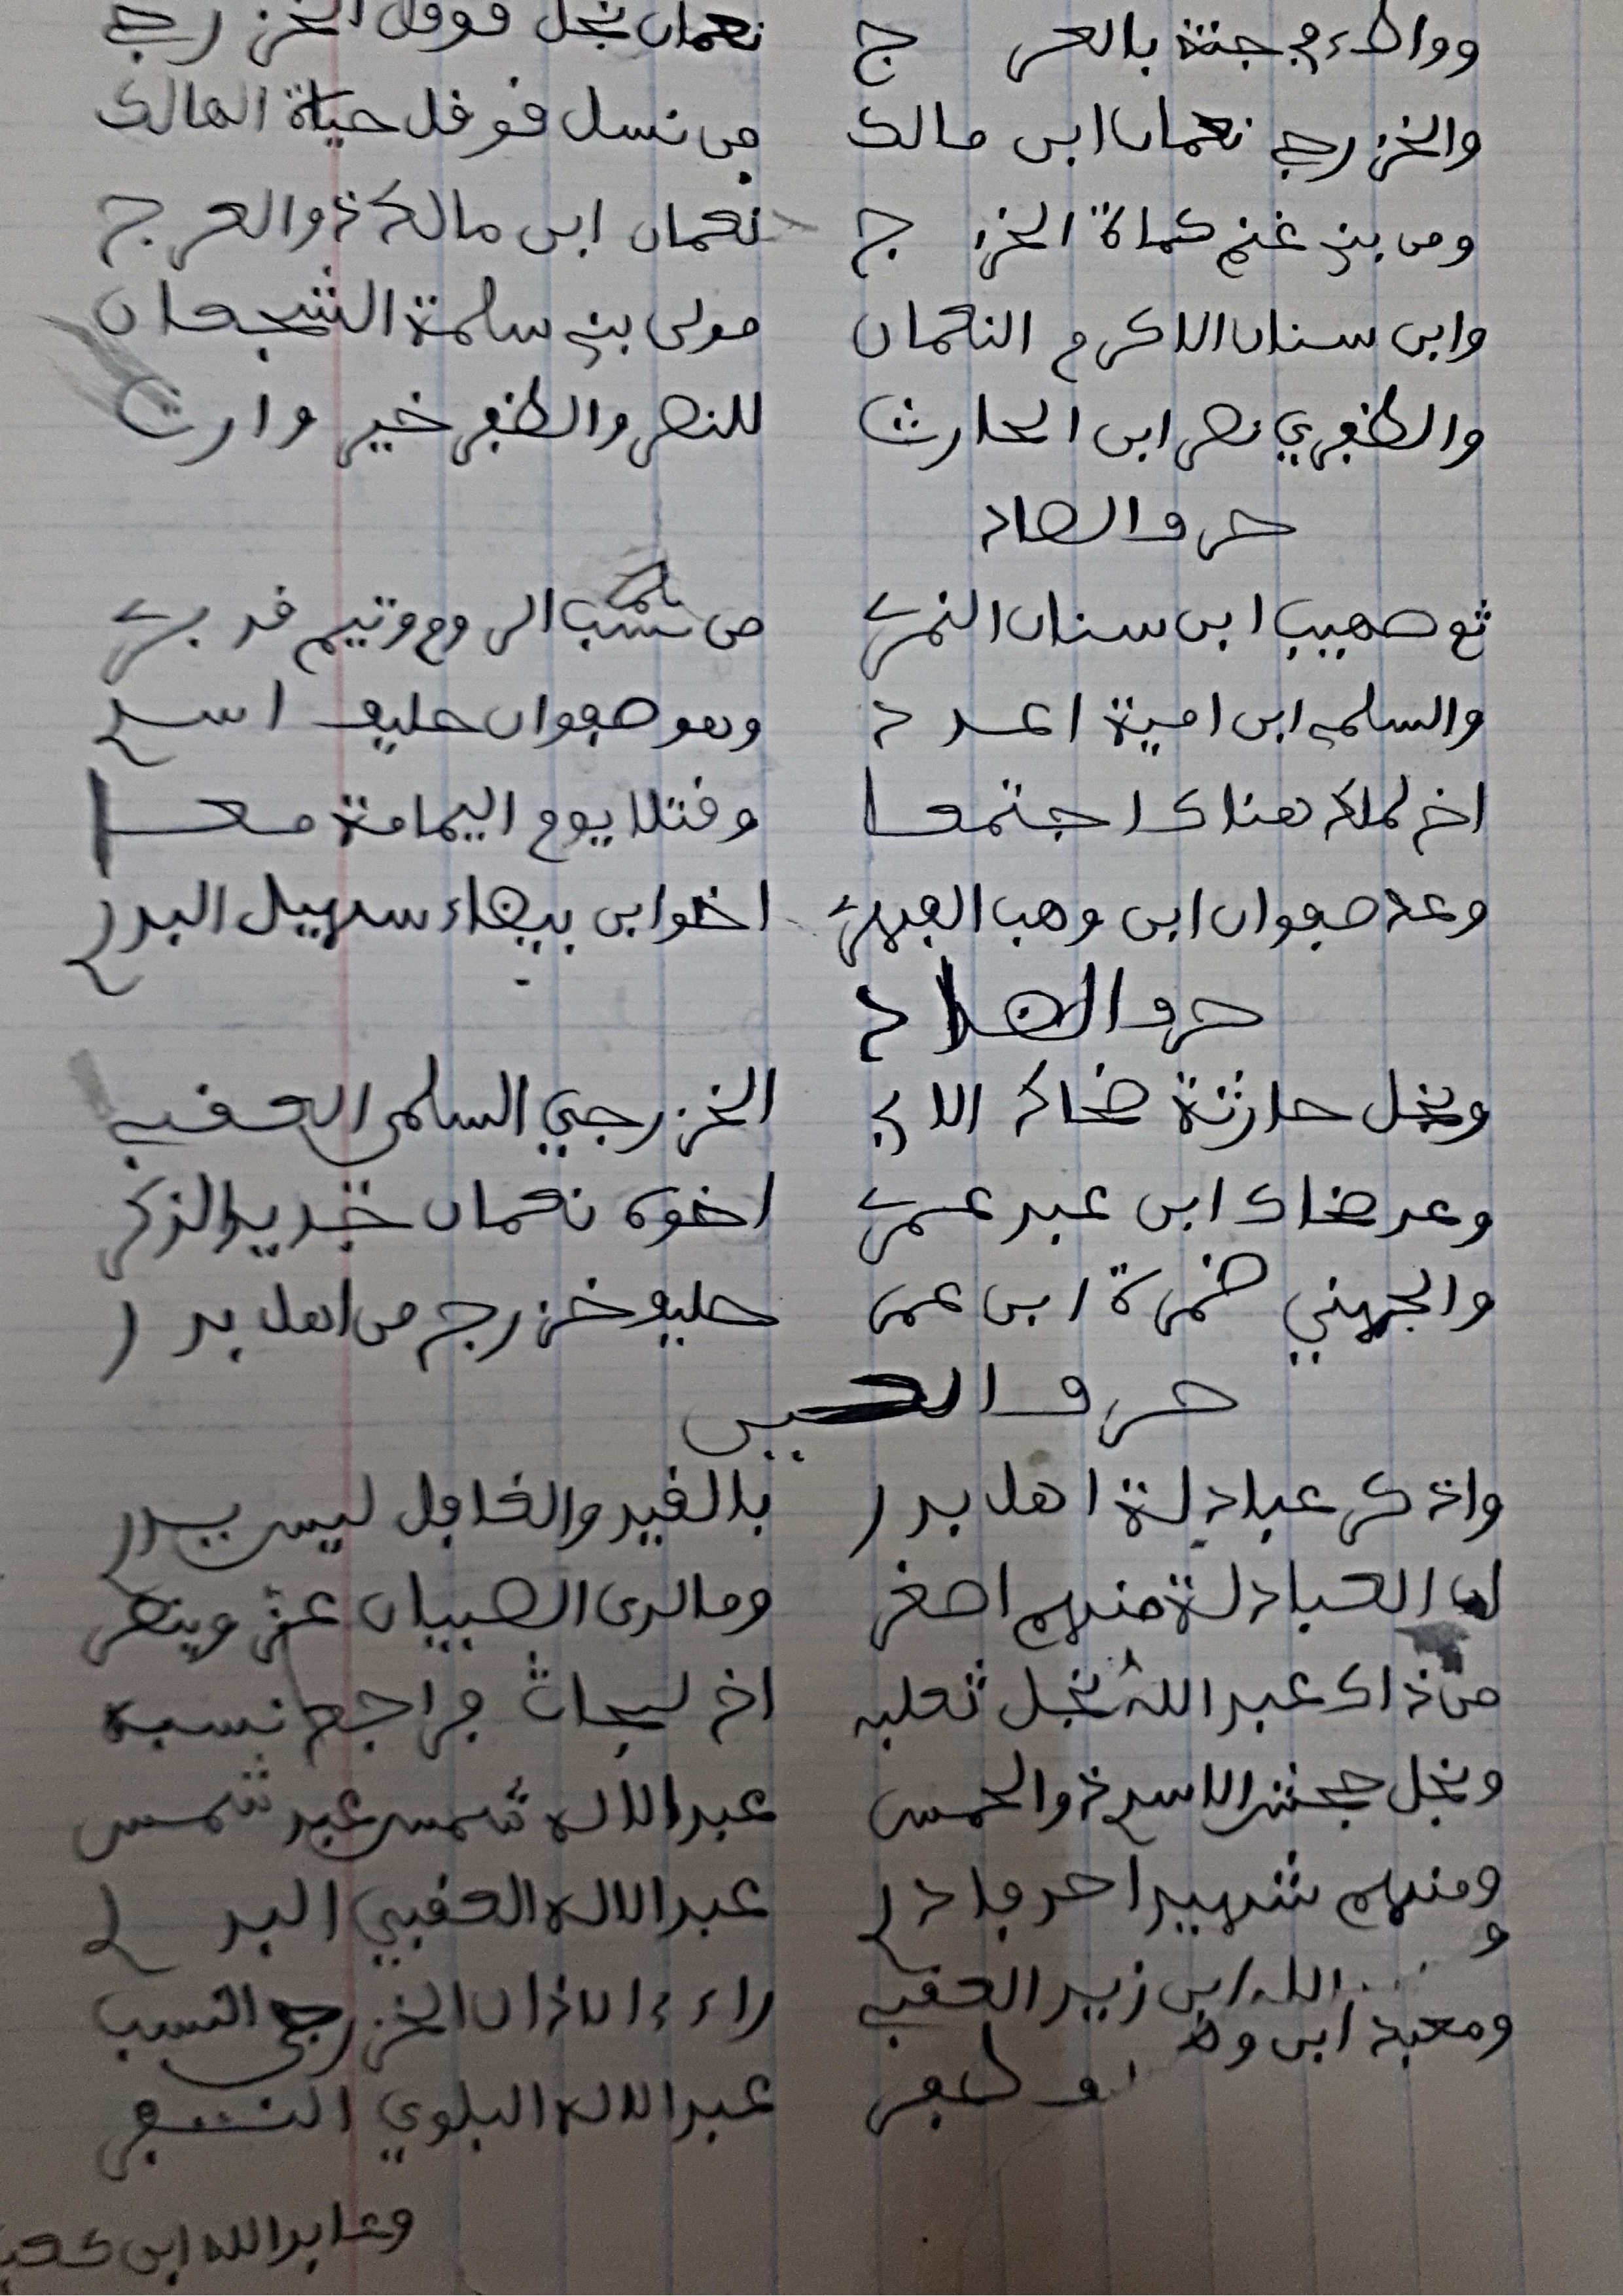 وواطء في جنة بالعرج نعمان نجل قوقل الخزرجي
والخزرجي نعمان ابن مالك من نسل قوقل حياة الهالك
ومن بني غنم كماة الخزرج نعمان ابن مالك ذو العرج
وابن سنان الاكرم النعمان مولى بني سلمة الشجعان
والظفري نصر ابن الحارث للنصر والظفر خير وارث
حرف الصاد
ثم صهيب ابن سنان النمري من الروم وتيم قد بري
والسلمي ابن امية اعدد وهو صفوان حليف اسد
اخ لملك هناك اجتمعا وقتلا يوم اليمامة معا
وعد صفوان ابن وهب الفهري اخو ابن بيضاء سهيل البدري
حرف الضاد
ونجل حارثة ضحاك الابي الخزرجي السلمي العقبي
وعد ضحاك ابن عبد عمري اخوه نعمان الذكر
والجهني ضمرة ابن عمر حليف خزرج من اهل بدر
حرف العين
واذكر عبادلة اهل بدر بالقيد والغافل ليس يدري
العبادلة منهم اصغر وما لدى الصبيان عز وينصر
من ذاك عبد الله نجل ثعلبه اخ لبحاث فراجع نسبه
ونجل جحش الاسدي ذو الحمس عبد الاله شمس عبد شمس
ومنهم شهيد احد فادر عبد الاله العقبي البدري
و الله ابن زيد العقبي راءي الاذان الخزرجي النسب
ومعبد ابن
ظفر عبد الاله البلوي
وعابد الله ابن كعب